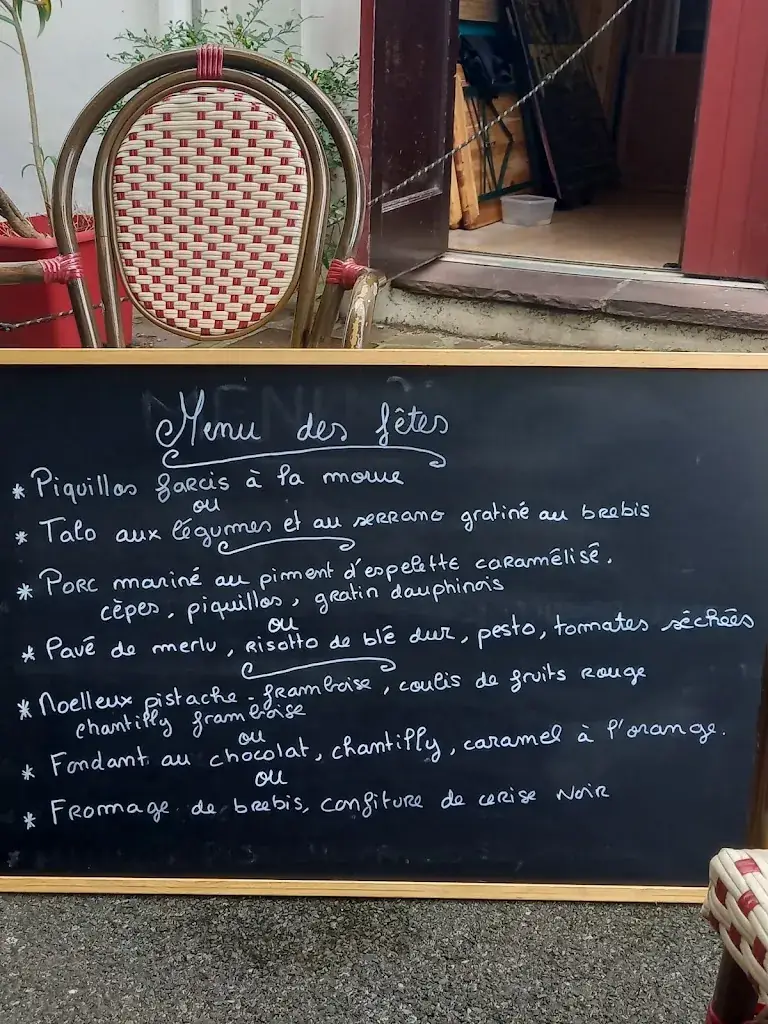 Menu des fêtes
* Piquillos farcis à la morue
ou
* Talo aux légumes et au serrano gratiné au brebis
* Porc mariné au piment d'espelette caramélisé.
cèpes, piquillos, gratin dauphinois
ou
* Pavé de merlu, risotto de blé dur, pesto, tomates séchées
* Moelleux pistache - framboise, coulis de fruits rouge
chantilly framboise
ou
* Fondant au chocolat, chantilly, caramel à l'orange.
ou
* Fromage de brebis, confiture de cerise Noir